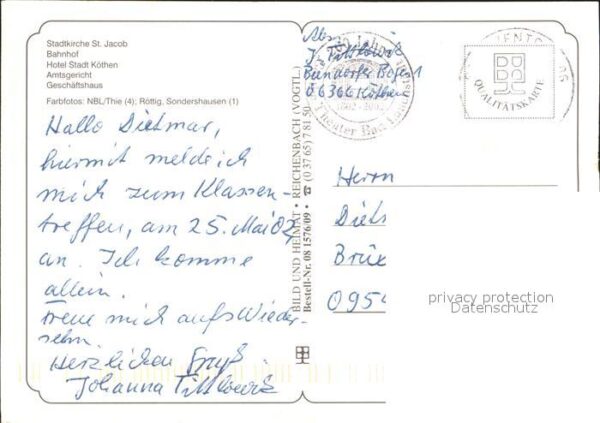 Stadtkirche St. Jacob
Bahnhof
Hotel Stadt Köthen
Amtsgericht
Geschäftshaus
Farbfotos: NBL/Thie (4); Röttig, Sondershausen (1)
Hallo Dietmar,
hiermit melde ich
mich zum Klassen-
treffen, am 25. Mai 02
an. Ich komme
allein.
Freue mich aufs Wieder-
sehn.
Herzlichen Gruß
Johanna Tittlowik
BILD UND HEIMAT • REICHENBACH (VOGTL.)
Bestell-Nr. 08 1576/09 • ☎ (0 37 65) 7 81 50
Abs.
J. Tittlowik
06366 Köthen
Theater Bad
QUALITÄTSKARTE
Herrn
Diet
Brüx
0954
privacy protection
Datenschutz